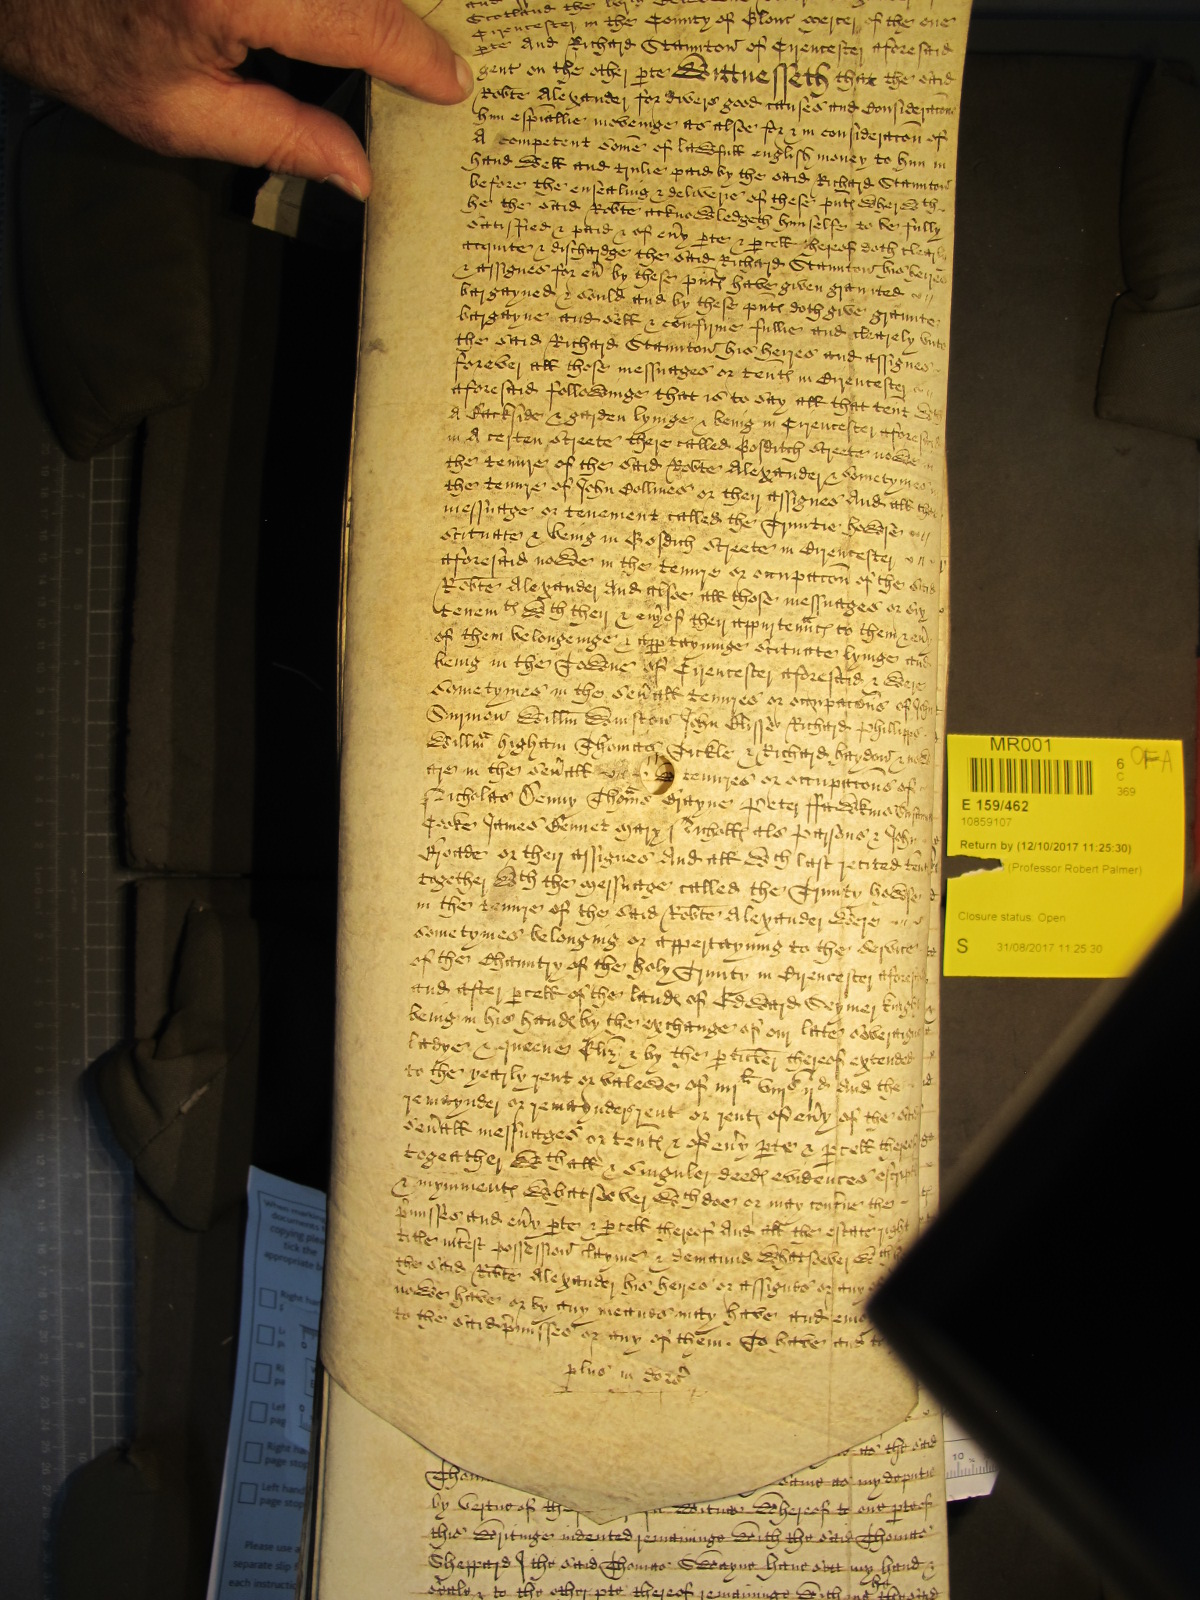 Scotland the
Cirencester in the County of Glouc mercer of the one
pte And Richard Stannton of Cirencester aforesaid
gent on the other pte Wittnesseth that the said
Robte Alexander for divers good causes and consideracons
him espiallie movinge as alsoe for & in consideracon of
A competent some of lawfull english money to him in
hand well and trulie paid by the said Richard Stannton
before the ensealing & deliverie of these pnts wherwth
he the said Robte acknowledgeth himselfe to be fully
satisfied & paid & of eny pte & pcell thereof doth clearly
acquite & dischardge the said Richard Stannton his heires
& assignes for ev by these pnts have given graunted
bargayned & sould and by these pnts doth give graunte
bargayne and sell & confirme fullie and clearely unto
the said Richard Stannton his heires and assignes
forever all those messuages or tents in Cirencester
aforesaid followinge that is to say all that tent wth
A backside & garden lyinge & being in Cirencester aforesaid
in A certen streete there called Gosditch streete nowe in
the tenure of the said Robte Alexander & sometymes
the tenure of John Collines or their assignes And all that
messuage or tenement called the Trinitie howse
scituate & being in Gosdich streete in Cirencester
aforesaid nowe in the tenure or occupacon of the said
Robte Alexander And alsoe all those messuages or six
tenemts wth their & evy of their appurtennces to them & evy
of them belonginge & apptayninge scituate lyinge and
being in the Towne of Cirencester aforesaid & were
sometymes in the sevall tenures or occupacons of John
Willm Winstow John Blisse Richard Phillipps
Willm higham Thomas Tickle & Richard haydon & nowe
are in the sevall tenures or occupacons of
Nicholas Thoms Peter
Cooke James Bennet Mary Nicholls als Parsons & John
or their assignes And all wch last recited tents
together wth the messuage called the Trinity howse
in the tenure of the said Robte Alexander were
sometymes belonging or appertayning to the service
of the Chauntry of the holy Trinity in Cirencester aforesaid
and after pcell of the lands of Edward Seymer knight
being in his hands by the exchange of our late soveraigne
ladye & queene Eliz & by the pticuler thereof extended
to the yearly rent or valewe of And the
remaynder or remaynders rent or rents of evy of the said
sevall messuages or tents & of evy pte & pcell thereof
togeather wth all & singuler deeds evidences escripts
& mynuments whatsoever wch doe or may concerne the
pmisses and evy pte & pcell thereof And all the estate right
title interest possession clayme & demaund whatsoever wch
the said Robte Alexander his heires or assignes or any
nowe have or by any meanes may have and
to the said pmisses or any of them. To have and to
plus in dors
as the said
Thom same as my deputie
by vertue of the In Witnes Whereof to one pte of
this Writinge indented remaininge With the said Thomas
Sheppard I the said Thomas Swayne have sett my hand &
seale & to the other pte thereof remaininge With me the said
MR001
OF-A
6
C
369
E 159/462
10859107
Return by (12/10/2017 11:25:30)
(Professor Robert Palmer)
Closure status: Open
S 31/08/2017 11:25:30
When marking
documents f
copying pleas
tick the
appropriate b
Right han
Left
Right han
page stop
Left hand
page stop
Please use a
separate slip f
each instructio
10